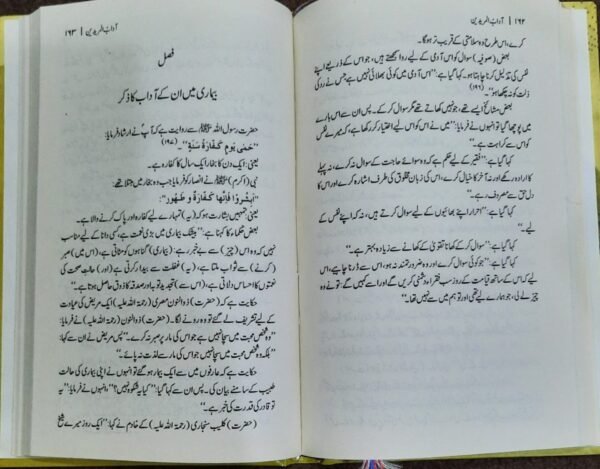 ۱۶۲ | آداب المریدین
کرے، اس طرح وہ سلامتی کے قریب تر ہوگا۔
بعض (صوفیہ) سوال کو اس آدمی کے لیے روا سمجھتے ہیں، جو اس کے ذریعے اپنے
نفس کی تذلیل کرنا چاہتا ہو۔ کہا گیا ہے: ”اس آدمی میں کوئی بھلائی نہیں ہے جس نے رد کی
ذلت کو نہ چکھا ہو“۔ (۱۹۶)
بعض مشائخ ایسے تھے، جو نہیں کھاتے تھے مگر سوال کر کے۔ پس ان سے اس بارے
میں پوچھا گیا تو انہوں نے فرمایا: ”میں نے اس کو اس لیے اختیار کر رکھا ہے، کہ میرے نفس
کو اس سے کراہت ہے“۔
کہا گیا ہے: ”فقیر کے لیے حکم ہے کہ وہ سوائے حاجت کے سوال نہ کرے، نہ پہلے
کا ارادہ رکھے اور نہ آخر کا خیال کرے، اس کی زبان مخلوق کی طرف اشارہ کرے اور اس کا
دل حق سے مصروف رہے۔
کہا گیا ہے: ”احرار اپنے بھائیوں کے لیے سوال کرتے ہیں، نہ کہ اپنے نفس کے
لیے“۔
کہا گیا ہے: ”سوال کر کے کھانا تقویٰ کے کھانے سے زیادہ بہتر ہے۔“
کہا گیا ہے: ”جو کوئی سوال کرے اور وہ ضرورتمند نہ ہو، اس سے ڈرنا چاہیے، اس
لیے کہ اس کے ساتھ قیامت کے روز سب فقراء دشمنی کریں گے اور کہیں گے: تو نے وہ
چیز لے لی، جو ہمارے لیے تھی اور تو ہم میں سے نہیں تھا۔“
آداب المریدین | ۱۶۳
فصل
بیماری میں ان کے آداب کا ذکر
حضرت رسول اللہ ﷺ سے روایت ہے کہ آپ نے ارشاد فرمایا:
”حُمّٰی یَومٍ کَفَّارَةُ سَنَةٍ“۔ (۱۹۷)
یعنی: ایک دن کا بخار ایک سال کا کفارہ ہے۔
نبی (اکرم) ﷺ نے انصار کو فرمایا، جب وہ بخار میں مبتلا تھے:
”اَبشُرُوا فَاِنَّهَا کَفَّارَة وَ طَهُور“۔
یعنی: تمہیں بشارت ہو کہ (یہ) تمہارے لیے کفارہ اور پاک کرنے والا ہے۔
بعض حکماء کا کہنا ہے: ”بیشک بیماری میں بڑی نعمت ہے، کسی دانا کے لیے مناسب
نہیں کہ وہ اس (چیز) سے بے خبر رہے: (بیماری) گناہوں کو مٹاتی ہے، اس میں (صبر
کرنے) سے ثواب ملتا ہے، (یہ) غفلت سے بیدار کرتی ہے (اور) حالت صحت کی
نعمتوں کا احساس دلاتی ہے، (اس سے) تجدید توبہ اور صدقہ کا ذوق حاصل ہوتا ہے“۔
حکایت ہے کہ (حضرت) ذوالنون مصری (رحمۃ اللہ علیہ) ایک مریض کی عیادت
کے لیے تشریف لے گئے تو وہ رونے لگا۔ (حضرت) ذوالنون (رحمۃ اللہ علیہ) نے فرمایا:
”وہ شخص محبت میں سچا نہیں ہے جو اس کی مار پر صبر نہ کرے۔“ پس مریض نے ان سے کہا:
”بلکہ وہ شخص محبت میں سچا نہیں جو اس کی مار سے لذت نہ پائے۔“
حکایت ہے کہ عارفوں میں سے ایک بیمار ہو گئے تو انہوں نے اپنی بیماری کی حالت
طبیب کے سامنے بیان کی۔ پس ان سے کہا گیا: ”کیا یہ شکوہ نہیں؟“، انہوں نے فرمایا: ”یہ
تو قادر کی قدرت کی خبر ہے۔“
(حضرت) کلیب سنجاری (رحمۃ اللہ علیہ) کے خادم نے کہا: ”ایک روز میرے شیخ